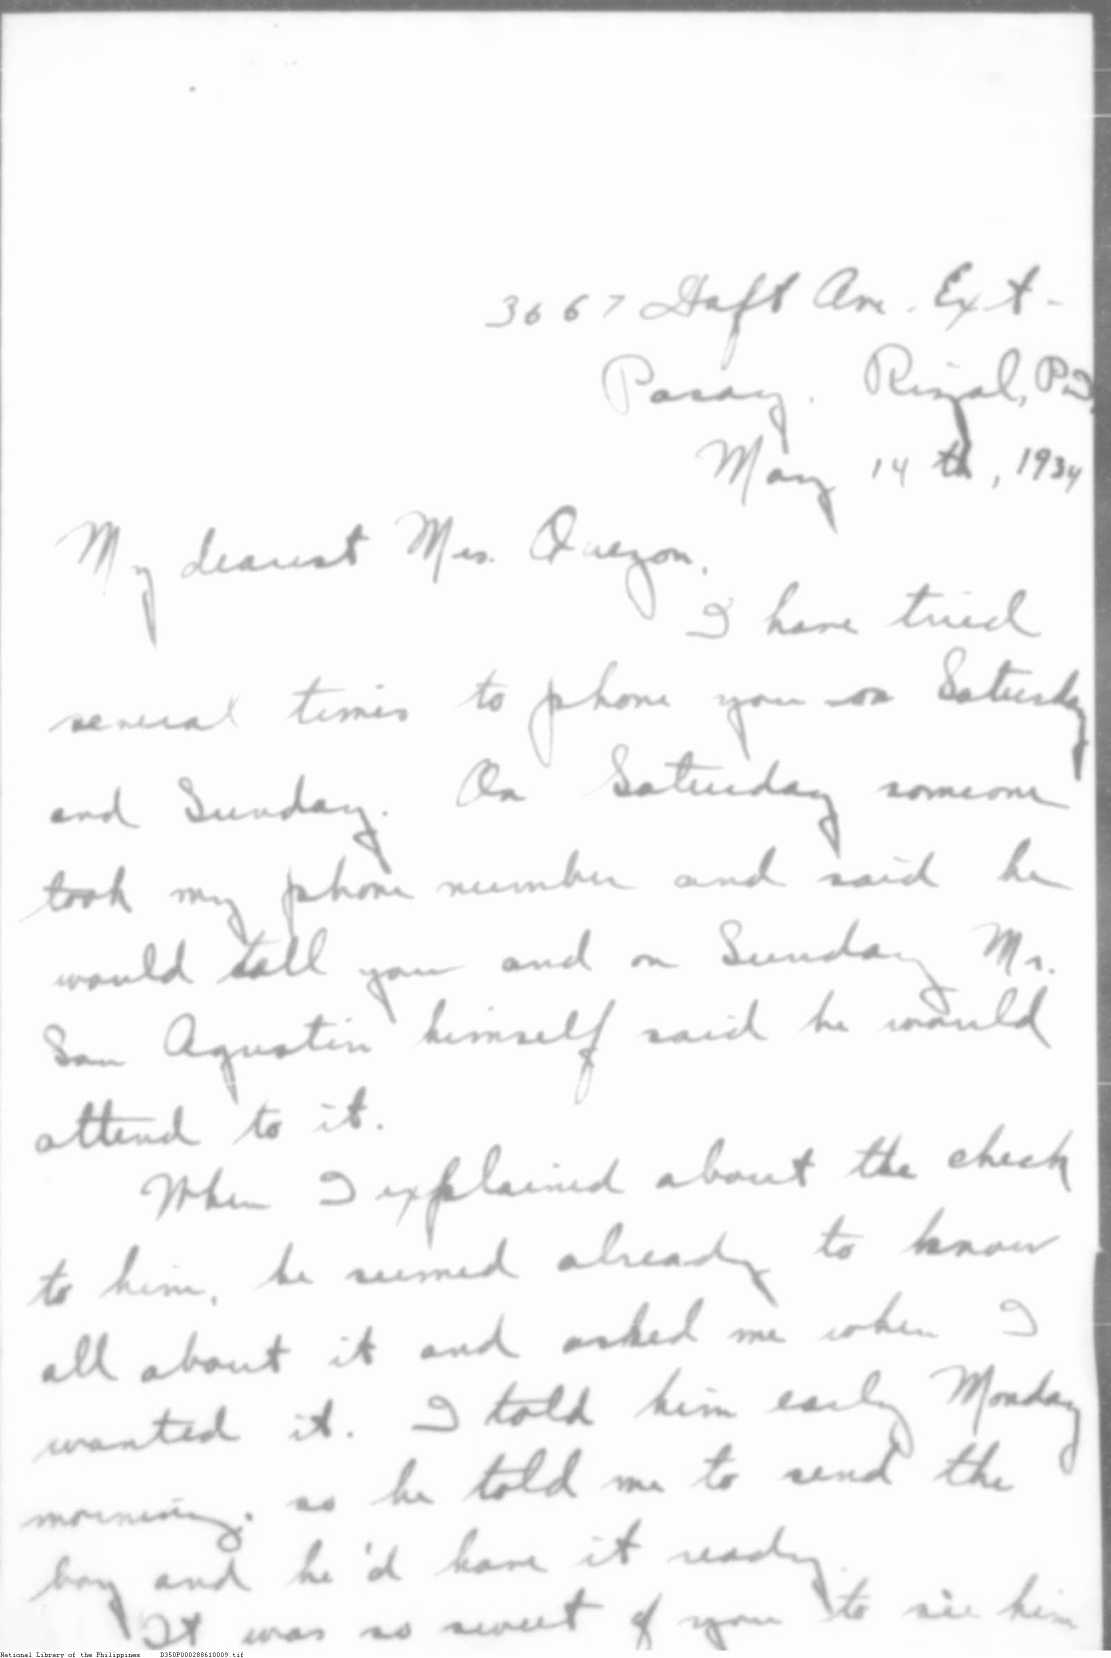 3667 Taft Ave. Ext -
Pasay. Rizal, P.I.
May 14th, 1934
My dearest Mrs. Quezon,
I have tried
several times to phone you on Saturday
and Sunday. On Saturday someone
took my phone number and said he
would tell you and on Sunday Mr.
San Agustin himself said he would
attend to it.
When I explained about the check
to him, he seemed already to know
all about it and asked me when I
wanted it. I told him early Monday
morning. so he told me to send the
boy and he'd have it ready.
It was so sweet of you to see him
National Library of the Philippines D350P000288610009.tif